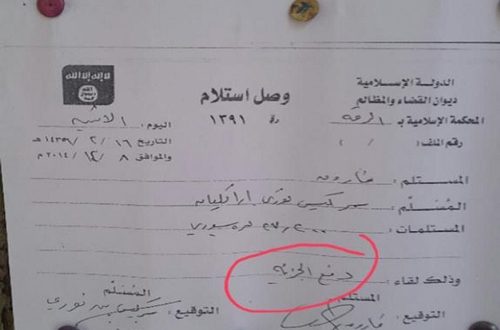 لا إله إلا الله
الله
رسول
محمد
الدولة الإسلامية
ديوان القضاء والمظالم
المحكمة الإسلامية بـ الرقة
رقم الملف: / /
وصل استلام
١٣٩١
اليوم: الاثنين
التاريخ ١٦ / ٢ / ١٤٣٦ هـ
والموافق ٨ / ١٢ / ٢٠١٤ م
المستلم: فاروق
المُسلّم: سركيس نوري اراكليان
المستلمات: سوري
وذلك لقاء: دفع الجزية
المستلم المُسلّم
التوقيع: فاروق التوقيع: سركيس نوري